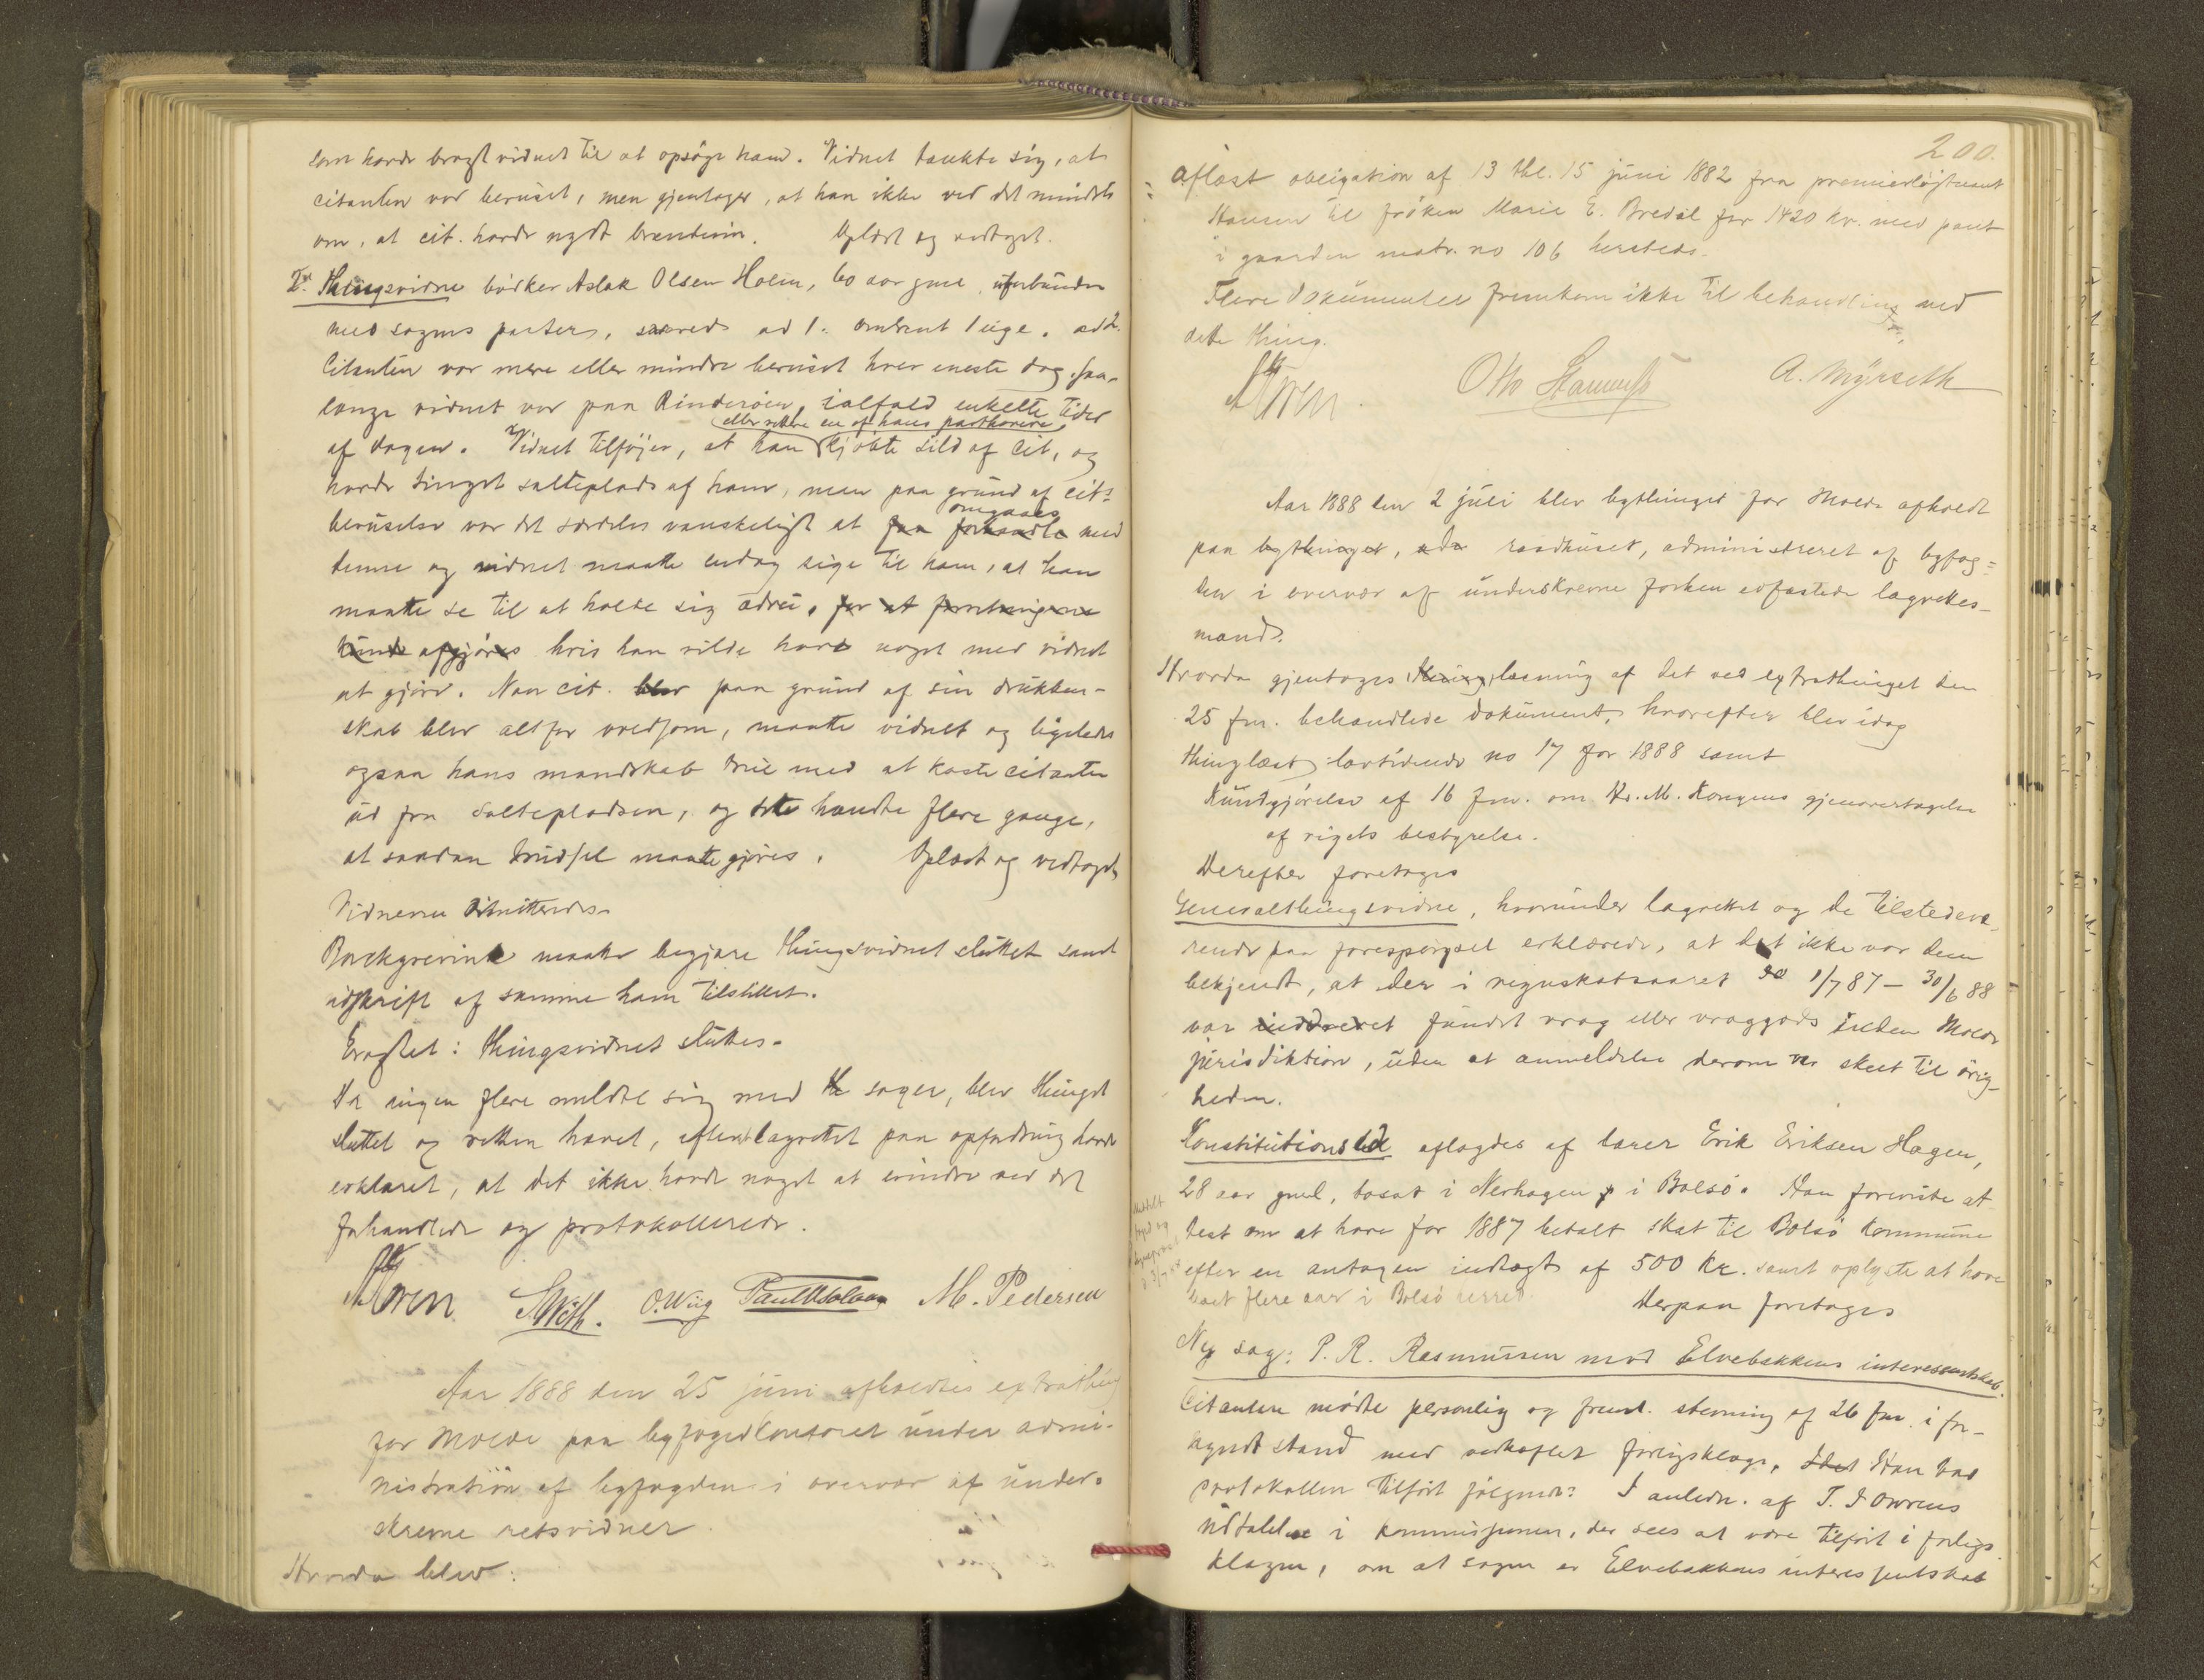 som havde bragt vidnet til at opsøge ham. Vidnet tænkte sig, at
citanten var beruset, men gjentager, at han ikke ved det mindste
om, at cit. havde nydt brændevin. Oplæst og vedtaget.
2. Thingsvidne bødker Aslak Olsen Holm, 60 aar gml, uforbunden
med sagens parter, svarede ad 1. omtrent 1 uge. ad 2.
Citanten var mere eller mindre beruset hver eneste dag, saa-
længe vidnet var paa Rinderøen, ialfald enkelte tider
af dagen. Vidnet tilføjer, at han (eller rettere en af hans parthavere) kjøbte sild af cit, og
havde tinget salteplads af ham, men paa grund af cits
beruselse var det særdeles vanskeligt at faa forhandle omgaaes med
denne og vidnet maatte endog sige til ham, at han
maatte se til at holde sig ædru, for at forretningerne
kunde afgjøres hvis han vilde have noget med vidnet
at gjøre. Naar cit. blev paa grund af sin drukken-
skab blev altfor voldsom, maatte vidnet og ligeledes
ogsaa hans mandskab true med at kaste citanten
ud fra saltepladsen, og det hændte flere gange,
at saadan trudsel maatte gjøres. Oplæst og vedtaget.
Vidnerne dimitteredes.
Borchgrevink maatte begjære thingsvidnet sluttet samt
udskrift af samme ham tilstillet.
Eragtet: Thingsvidnet sluttes.
Da ingen flere meldte sig med sager, blev thinget
sluttet og retten hævet, efterat lagrettet paa opfordring havde
erklæret, at det ikke havde noget at erindre ved det
forhandlede og protokollerede.
O. Wiig M. Pedersen
Aar 1888 den 25 juni afholdtes extrathing
for Molde paa byfogedkontoret under admi-
nistration af byfogden i overvær af under-
skrevne retsvidner.
Hvorda blev:
200.
Aflæst obligation af 13 thl. 15 juni 1882 fra premierløjtnant
Hansen til frøken Marie E. Bredal for 1420 kr. med pant
i gaarden matr. no 106 hersteds.
Flere dokumenter fremkom ikke til behandling ved
dette thing.
A. Myrseth
Aar 1888 den 2 juli blev bythinget for Molde afholdt
paa bythinget, raadhuset, administreret af byfog-
den i overvær af underskrevne forhen edfæstede lagrettes-
mænd.
Hvorda gjentages thinglæsning af det ved extrathinget den
25 f.m. behandlede dokument, hvorefter blev idag
thinglæst lovtidende no 17 for 1888 samt
Kundgjørelse af 16 f.m. om H. M. Kongens gjenovertagelse
af rigets bestyrelse.
Derefter foretages
Generalthingsvidne, hvorunder lagrettet og de tilstedevæ-
rende paa forespørgsel erklærede, at det ikke var dem
bekjendt, at der i regnskabsaaret 1/7 87 – 30/6 88
var inddrevet fundet vrag eller vraggods inden Molde
jurisdiktion, uden at anmeldelse derom var skeet til øvrig-
heden.
Konstitutionsed aflagdes af lærer Erik Eriksen Hagen,
28 aar gml, bosat i Nerhagen i Bolsø. Han foreviste at-
test om at have for 1887 betalt skat til Bolsø kommune
efter en antagen indtægt af 500 kr. samt oplyste at have
boet flere aar i Bolsø herred. Derpaa foretages
Ny sag: P. R. Rasmussen mod Elvebakkens interessentskab.
Citanten mødte personlig og freml. stevning af 26 f.m. i for-
kyndt stand med vedhæftet forligsklage. Idet Han bad
protokollen tilført følgende: I anledn. af T. J. Owrens
udtalelse i kommissionen, der sees at være tilført i forligs
klagen, om at sagen er Elvebakkens interessentskab